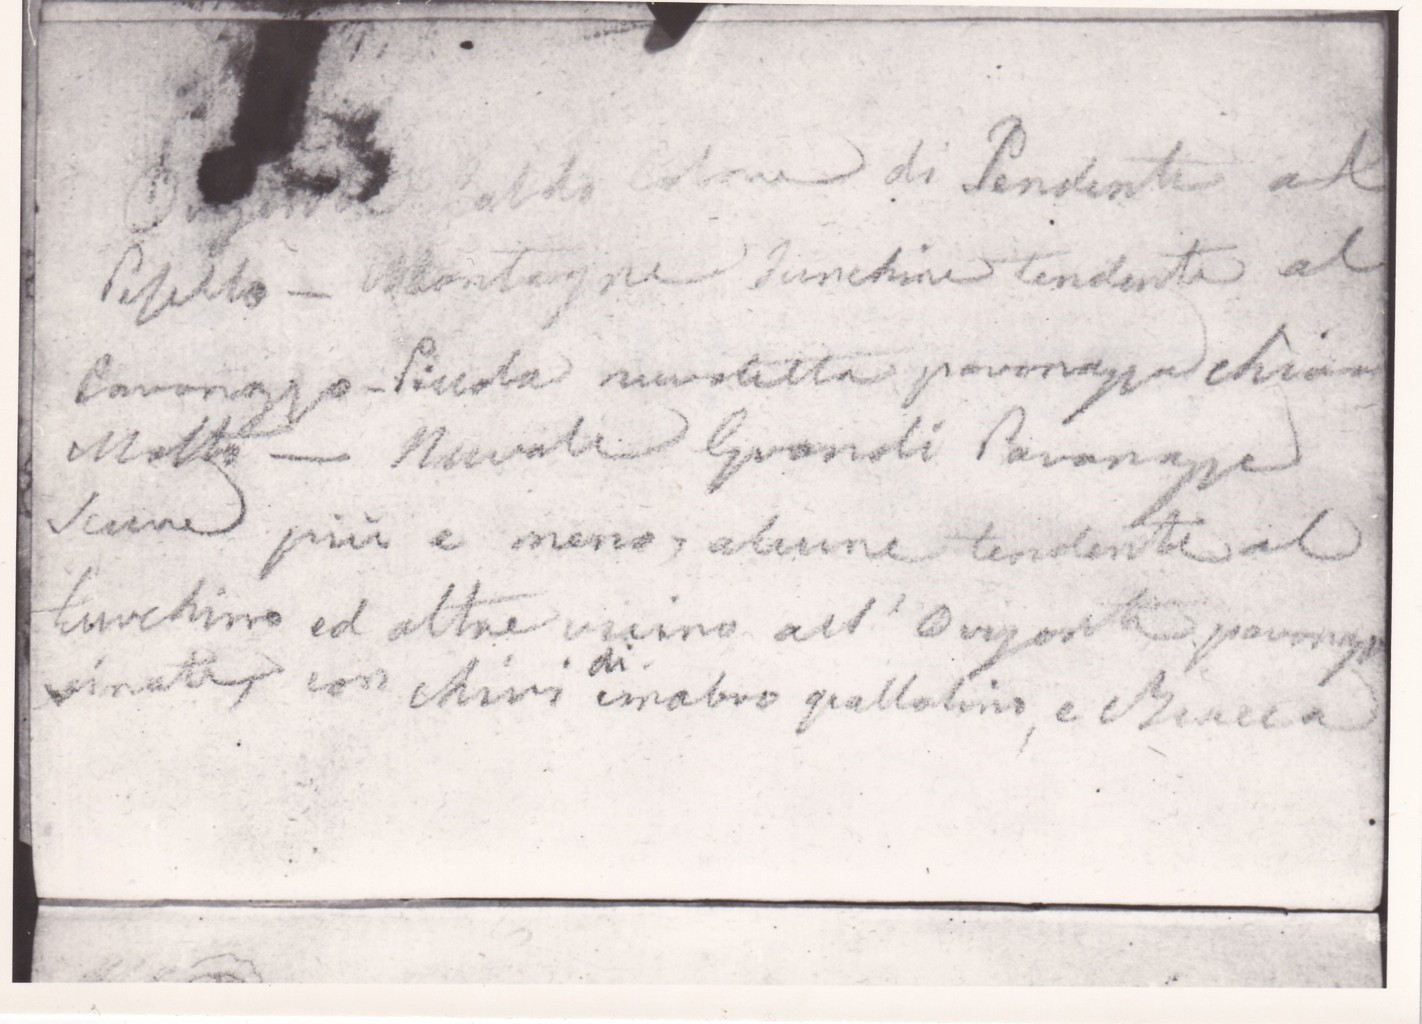 Orizonte caldo Colore di Pendente al
Pesello — Montagne Turchine tendente al
Pavonazzo - Piccola nuvoletta pavonazza chiara
Molto — Nuvole Grandi Pavonazze
scure più e meno, alcune tendente al
turchino ed altre vicino all' Orizonte pavonazze
sinate, con chiri di cinabro giallolino, e Biacca